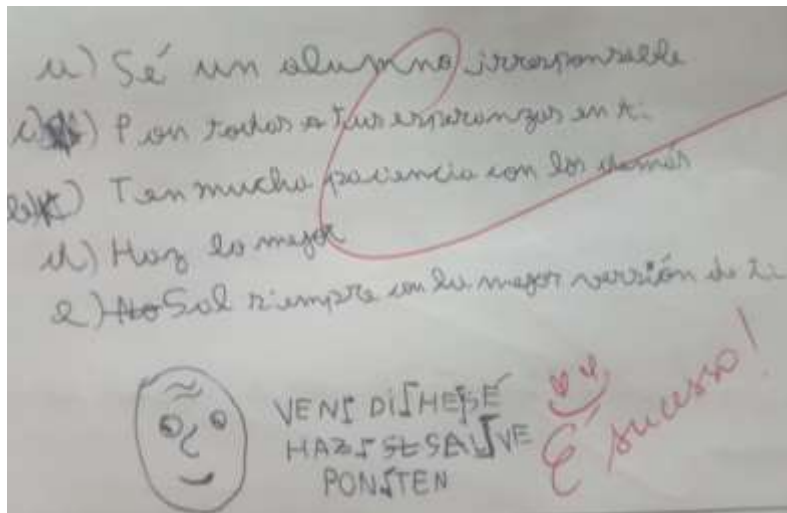 a) Sé un alumno irresponsable
c) Pon todas a tus esperanzas en ti.
b) Ten mucha paciencia con los demás
d) Haz lo mejor
e) No Sal siempre con la mejor versión de ti
VEN DI HE SÉ
HAZ SE SAL VE
PON TEN
É sucesso!